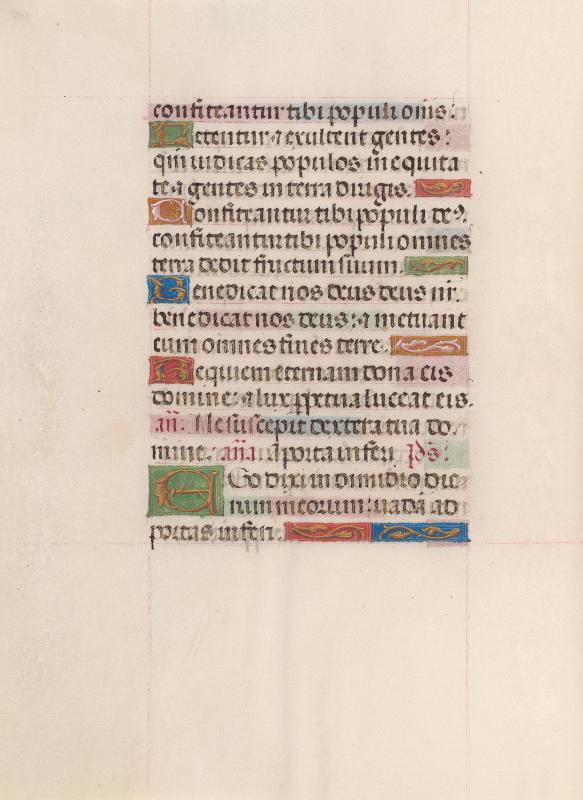 confiteantur tibi populi om̄s:
Letentur ⁊ exultent gentes:
qm̄ iudicas populos in equita
te ⁊ gentes in terra dirigis.
Confiteantur tibi populi de⁹.
confiteantur tibi populi omnes
terra dedit fructum suum.
Benedicat nos deus deus nr̄.
benedicat nos deus: ⁊ metuant
eum omnes fines terre.
Requiem eternam dona eis
domine: ⁊ lux ꝑpetua luceat eis.
an̄. Me suscepit dextera tua do.
mine. an̄a A porta inferi ps̄:
Ego dixi in dimidio die
rum meorum: vadā ad
portas inferi.